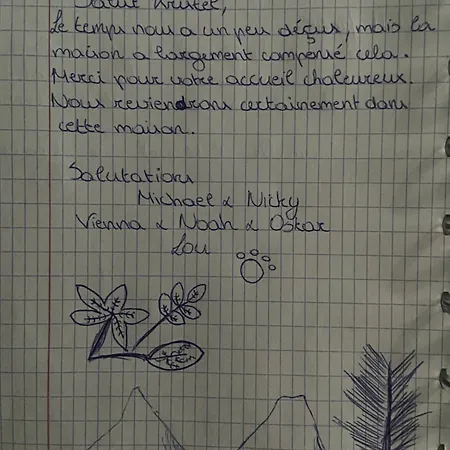 Salut Kristel,
Le temps nous a un peu déçus, mais la
maison a largement compensé cela.
Merci pour votre accueil chaleureux.
Nous reviendrons certainement dans
cette maison.
Salutations
Michael & Nicky
Vienna & Noah & Oskar
Lou